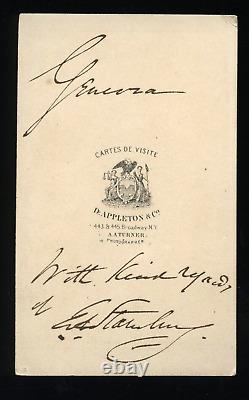 Geneva
CARTES DE VISITE
D. APPLETON & Co.
443 & 445 Broadway N.Y.
A.A. TURNER,
PHOTOGRAPHER
With Kind regards
of
© ebay.com